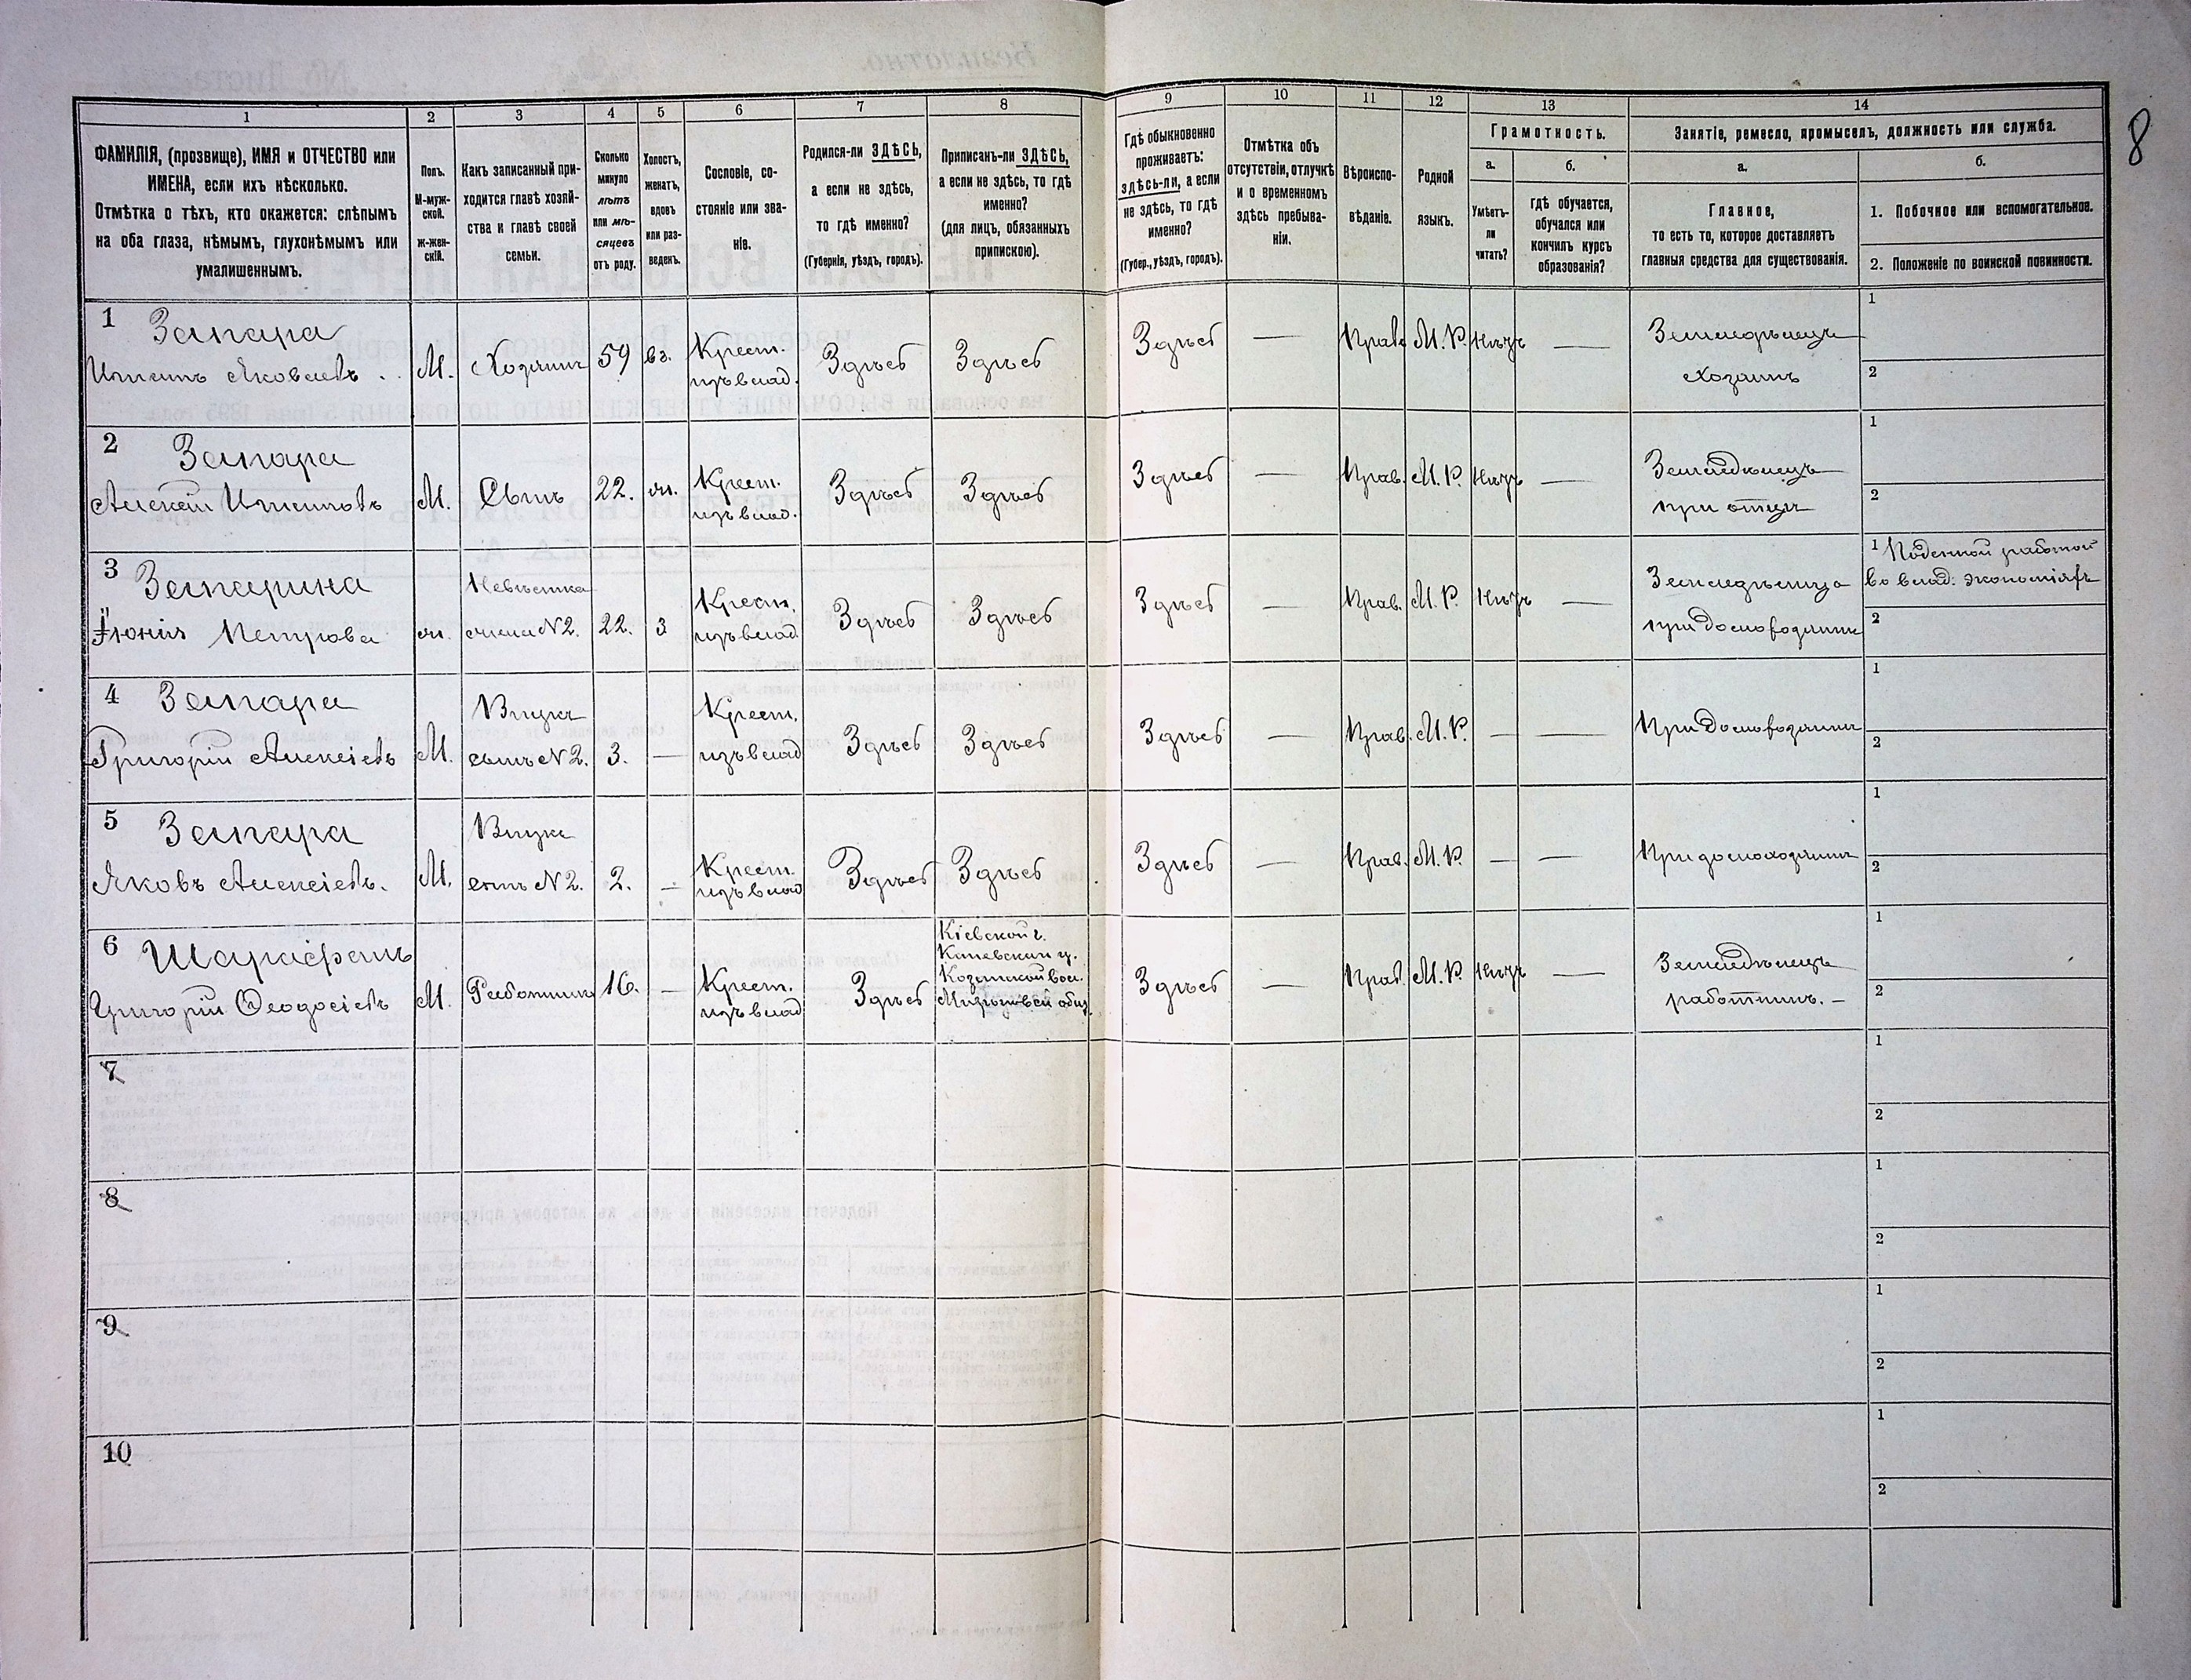 8
1
2
3
4
5
6
7
8
9
10
11
12
13
14
ФАМИЛІЯ, (прозвище), ИМЯ и ОТЧЕСТВО или
ИМЕНА, если ихъ нѣсколько.
Отмѣтка о тѣхъ, кто окажется: слѣпымъ
на оба глаза, нѣмымъ, глухонѣмымъ или
умалишеннымъ.
Полъ.
М-муж-
ской.
ж-жен-
скій.
Какъ записанный при-
ходится главѣ хозяй-
ства и главѣ своей
семьи.
Сколько
минуло
лѣтъ
или мѣ-
сяцевъ
отъ роду.
Холостъ,
женатъ,
вдовъ
или раз-
веденъ.
Сословіе, со-
стояніе или зва-
ніе.
Родился-ли ЗДѢСЬ,
а если не здѣсь,
то гдѣ именно?
(Губернія, уѣздъ, городъ).
Приписанъ-ли ЗДѢСЬ,
а если не здѣсь, то гдѣ
именно?
(для лицъ, обязанныхъ
припискою).
Гдѣ обыкновенно
проживаетъ:
здѣсь-ли, а если
не здѣсь, то гдѣ
именно?
(Губер., уѣздъ, городъ).
Отмѣтка объ
отсутствіи, отлучкѣ
и о временномъ
здѣсь пребыва-
ніи.
Вѣроиспо-
вѣданіе.
Родной
языкъ.
Грамотность.
а.
Умѣетъ-
ли
читать?
б.
гдѣ обучается,
обучался или
кончилъ курсъ
образованія?
Занятіе, ремесло, промыселъ, должность или служба.
а.
Главное,
то есть то, которое доставляетъ
главныя средства для существованія.
б.
1. Побочное или вспомогательное.
2. Положеніе по воинской повинности.
1 Запара
Яковлевъ
М.
Хозяинъ
59
вд.
Крест.
изъ влад.
Здѣсь
Здѣсь
Здѣсь
—
Прав.
М. Р.
Нѣтъ
—
Земледѣлецъ
хозяинъ
1
2
2 Запара
Алексѣй
М.
Сынъ
22.
Крест.
изъ влад.
Здѣсь
Здѣсь
Здѣсь
—
Прав.
М. Р.
Нѣтъ
—
Земледѣлецъ
при отцѣ
1
2
3
Петрова
Невѣстка
жена №2.
22.
З
Крест.
изъ влад.
Здѣсь
Здѣсь
Здѣсь
—
Прав.
М. Р.
Нѣтъ
—
при домовод
1 Поденной работой
во влад. экономіяхъ
2
4 Запара
Григорій Алексіевъ
М.
Внукъ
сынъ №2.
3.
—
Крест.
изъ влад.
Здѣсь
Здѣсь
Здѣсь
—
Прав.
М. Р.
—
—
1
2
5 Запара
Яковъ Алексіевъ.
М.
Внукъ
сынъ №2.
2.
—
Крест.
изъ влад.
Здѣсь
Здѣсь
Здѣсь
—
Прав.
М. Р.
—
—
1
2
6 Шарафанъ
Григорій Ѳеодосіевъ
М.
Работникъ
16.
—
Крест.
изъ влад.
Здѣсь
Кіевской г.
Каневскаго у.
Козинской вол.
Здѣсь
—
Прав.
М. Р.
Нѣтъ
—
Земледѣлецъ
работникъ. –
1
2
7
1
2
8
1
2
9
1
2
10
1
2